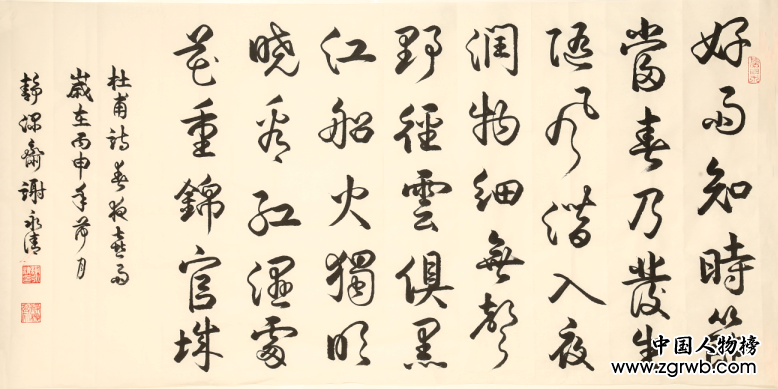 好雨知時節
當春乃發生
随風潜入夜
润物細無聲
野徑雲俱黑
江船火獨明
晓看红濕處
花重錦官城
杜甫詩春夜喜雨
歲在丙申年荷月
静深齋謝永清
中国人物榜
www.zgrwb.com